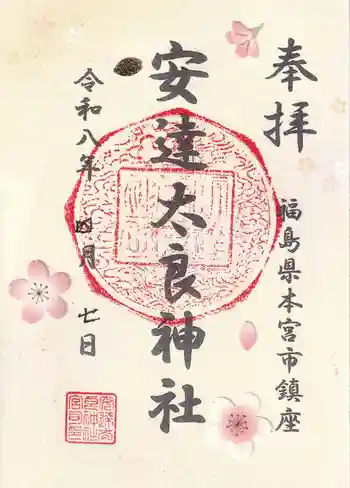 奉拝
福島県本宮市鎮座
安達太良神社
令和八年 四月 七日